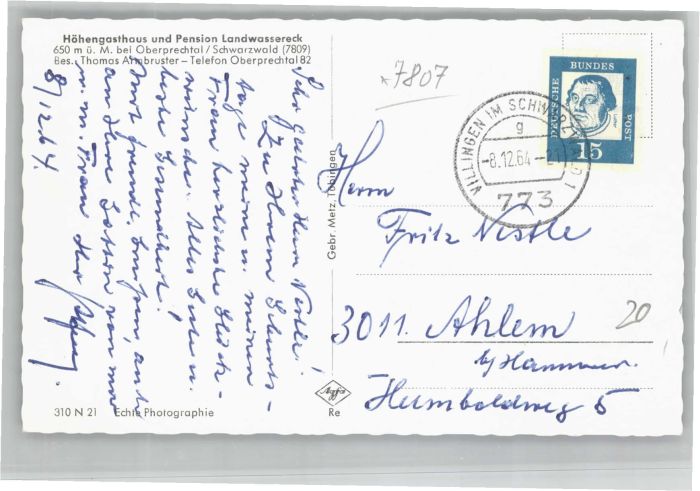 Höhengasthaus und Pension Landwassereck
650 m ü. M. bei Oberprechtal / Schwarzwald (7809)
Bes.: Thomas Armbruster – Telefon Oberprechtal 82
8/12 64.
Sehr geehrter Herr Nestle!
Zu Ihrem Geburts-
tage meine u. meiner
Frau herzlichste Glück-
wünsche. Alles Gute u.
beste Gesundheit!
auch
an Ihre Gattin von mir
u. m. Frau Ihr
310 N 21 Echte Photographie
Gebr. Metz, Tübingen
Agfa
Re
7807
VILLINGEN IM SCHWARZWALD 1
g
-8.12.64-
773
DEUTSCHE
BUNDES
POST
15
Herrn
Fritz Nestle
3011. Ahlem
b/Hannover.
Humboldweg 5
20